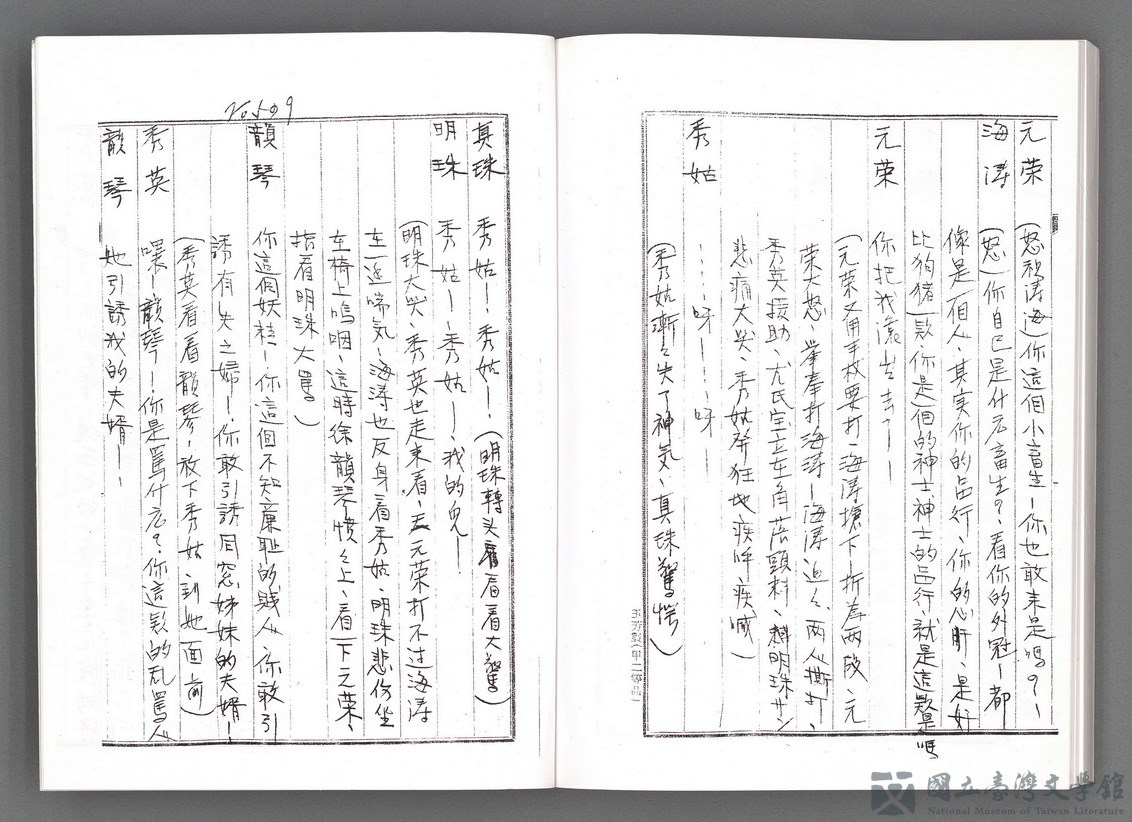 元荣　(怒视涛海)你這個小畜生—你也敢来是嗎?—
海濤　(怒)你自己是什么畜生?、看你的外冠—都
像是一個人、其实你的品行、你的心肝、是好
比狗猪一款你是一個的神士神士的品行就是這款是嗎
元荣　你把我滾出去?——
(元荣又用手杖要打、海濤壞下一折為兩段、元
荣大怒、举拳打海濤—海濤迫々、两人撕打、
秀英援助、尤氏宝立在角落頭料、
悲痛大哭、秀姑發狂地疾呼疾喊)
秀姑　……呀——呀—
(秀姑漸々失了神気、真珠驚愕)
真珠　秀姑—秀姑—、(明珠轉头看看看大驚)
明珠　秀姑—、秀姑—、我的兒—
(明珠大哭、秀英也走来看、孟元荣打不过海濤
在一边喘気、海濤也反身看秀姑、明珠悲伤坐
在椅上嗚咽、這時徐韻琴憤々上、看一下之荣、
指着明珠大罵)
韻琴　你這個妖精—你這個不知廉恥的賤人、你敢引
誘有夫之婦—、你敢引誘同窓姊妹的夫婿—、
(秀英看看韻琴、放下秀姑到她面前)
秀英　嘿—韻琴—、你是罵什么?、你這款的乱罵人
韻琴　她引誘我的夫婿——
國立臺灣文學館
National Museum of Taiwan Literature